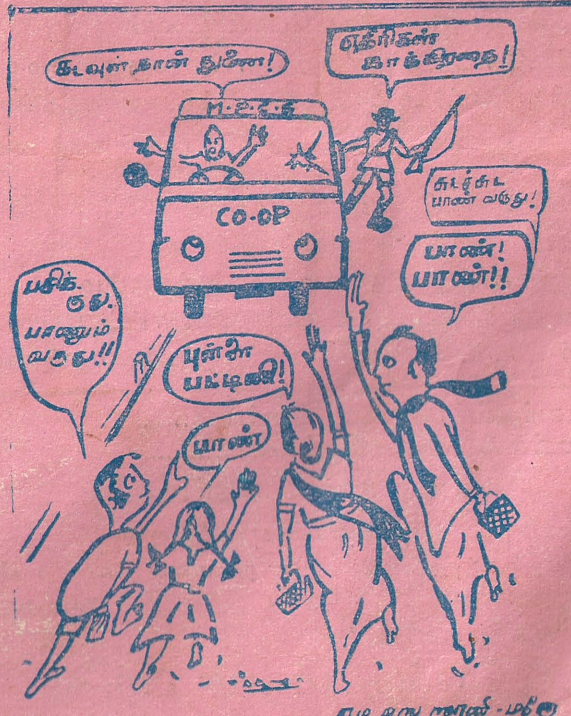 கடவுள் தான் துணை!
எதிரிகள்
காக்கிறதை!
M.P.C.S
CO-OP
சுடச்சுட
பாண் வருது!
பாண்!
பாண்!!
பசிக்
குது.
பாணும்
வருது!!
புள்ள
பட்டினி!
பாண்